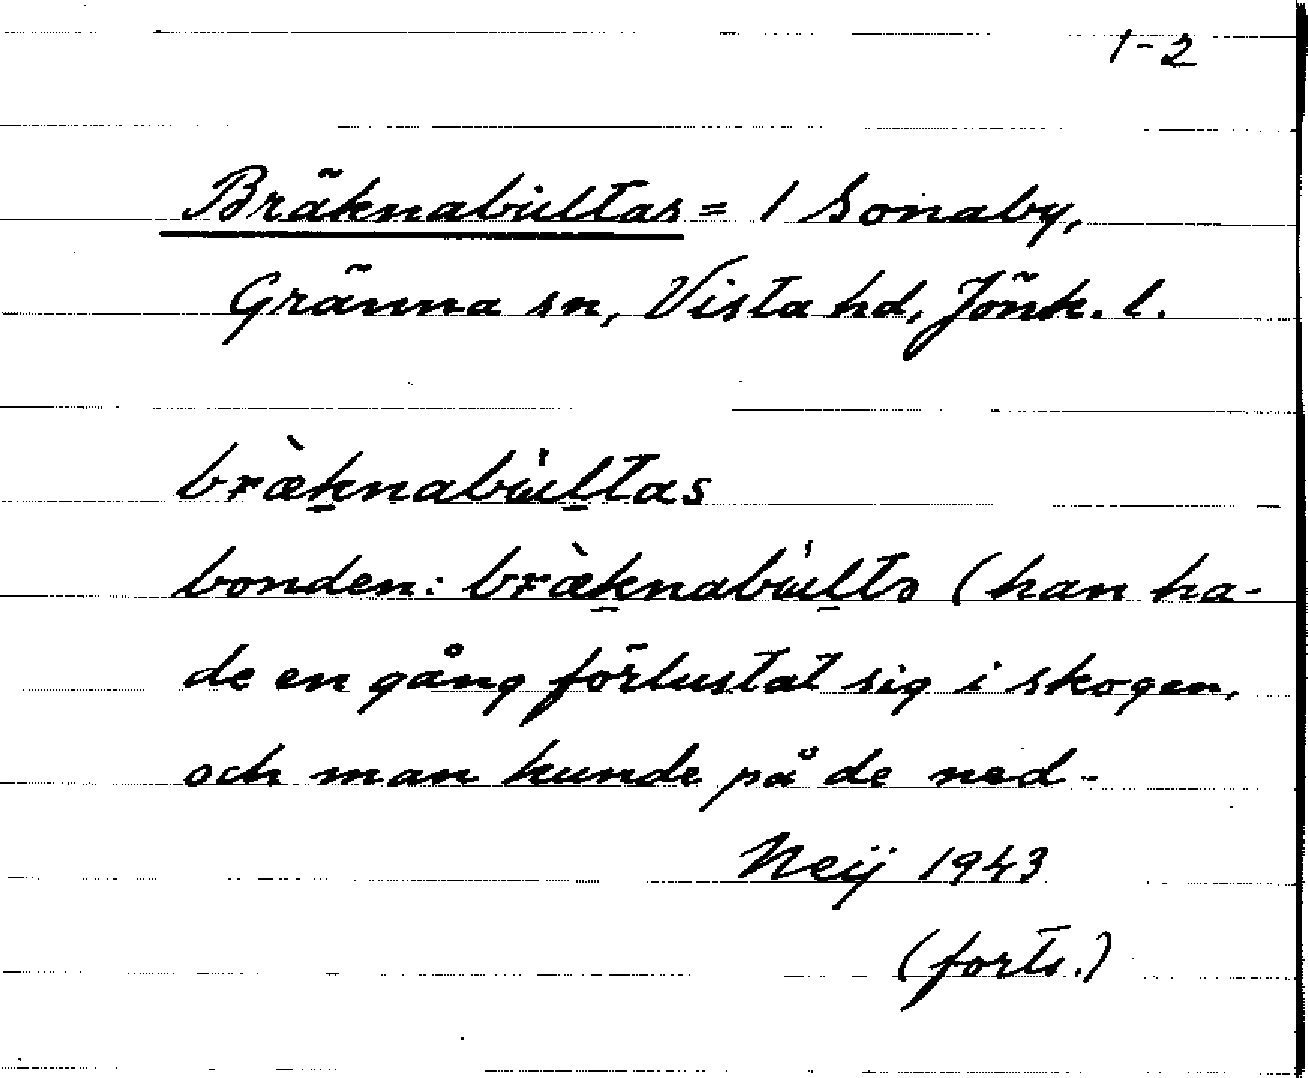 1-2
Bräknabultas = 1 Sonaby,
Gränna sn, Vista hd, Jönk. l.
bræ̀knabultas
bonden: bræ̀knabults (han ha-
de en gång förlustat sig i skogen,
och man kunde på de ned-
Neij 1943
(forts.)